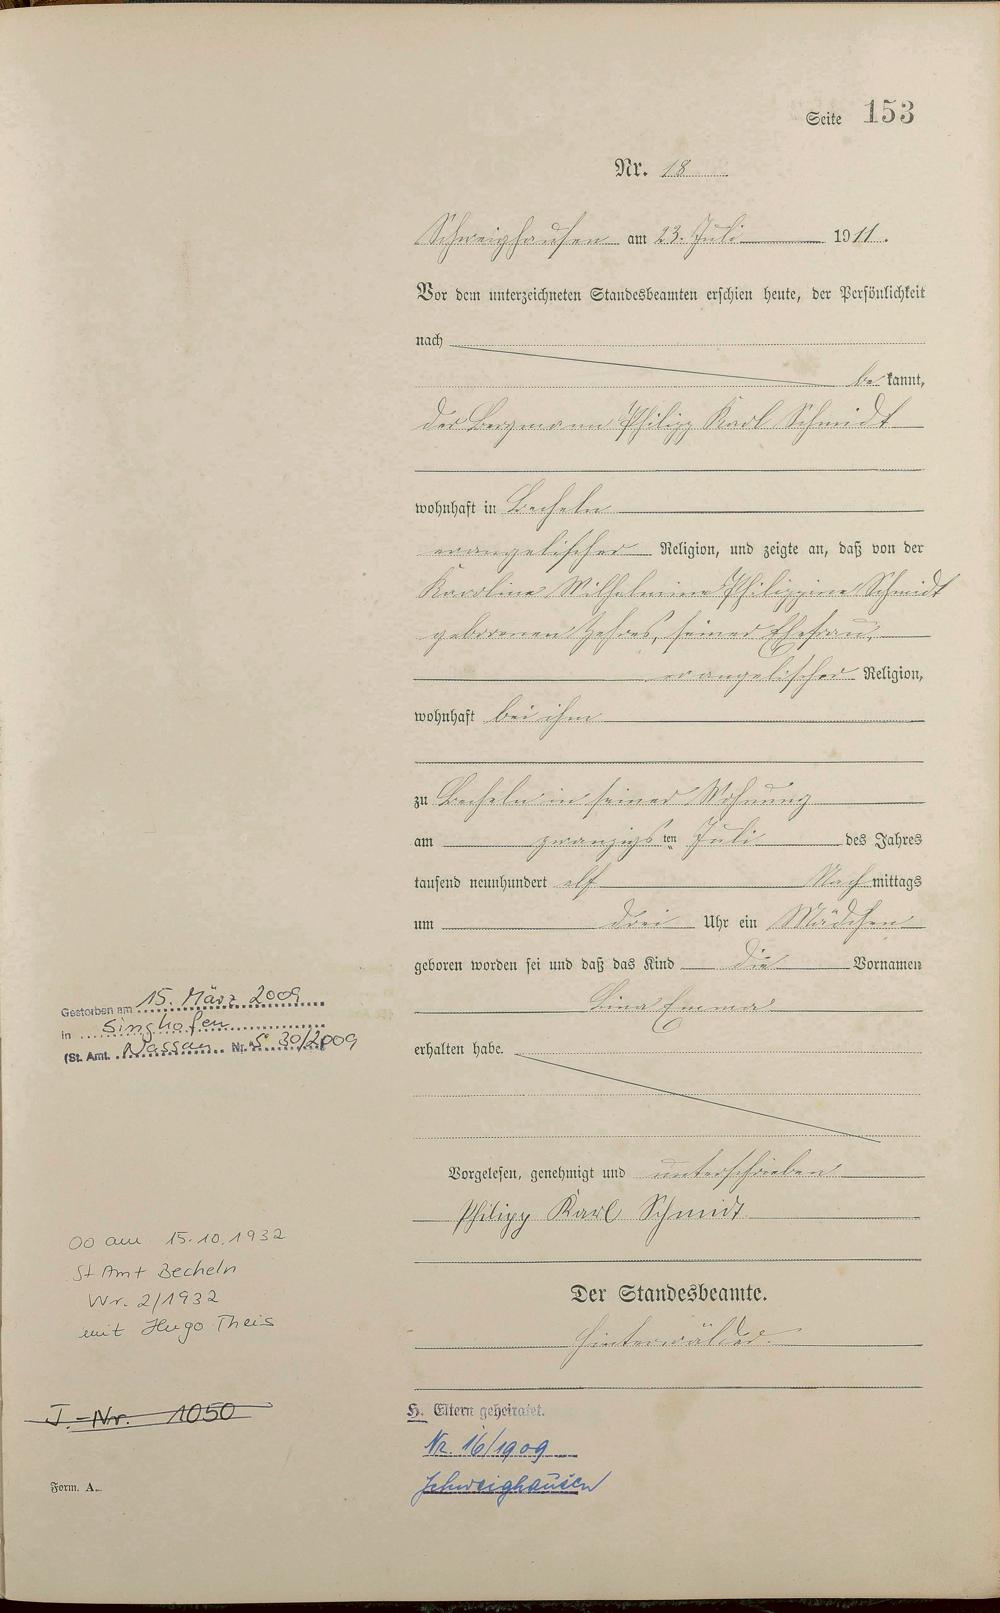 Seite 153
Nr. 18
Schweighausen am 23. Juli 1911.
Vor dem unterzeichneten Standesbeamten erschien heute, der Persönlichkeit
nach
be kannt,
der Bergmann Philipp Karl Schmidt
wohnhaft in Becheln
evangelischer Religion, und zeigte an, daß von der
Karoline Wilhelmine Philippine Schmidt
geborenen seiner Ehefrau,
evangelischer Religion,
wohnhaft bei ihm
zu Becheln in seiner Wohnung
am zwanzigs ten Juli des Jahres
tausend neunhundert elf Nach mittags
um drei Uhr ein Mädchen
geboren worden sei und daß das Kind die Vornamen
Lina Emma
erhalten habe.
Vorgelesen, genehmigt und unterschrieben
Philipp Karl Schmidt
Der Standesbeamte.
Hinterwälder.
Gestorben am 15. März 2009
in Singhofen
(St. Amt. Nassau Nr. S 30/2009
OO am 15.10.1932
St Amt Becheln
Nr. 2/1932
mit Hugo Theis
J.-Nr. 1050
H. Eltern geheiratet.
Nr. 16/1909
Schweighausen
Form. A.